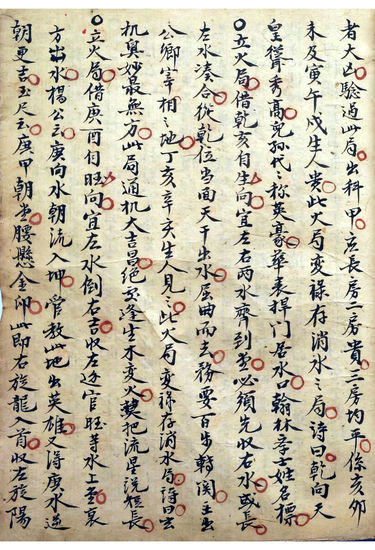 者大凶驗過此局出科甲应長房一房貴二房均平係亥卯
未及寅午戌生人贵此火局变祿存消水之局詩曰乾向天
皇擢秀高児孙代之称英豪華表捍门居水口翰林孝士姓名標
立火局借乾亥自生向宜左右两水齊到堂必須先收右水或長
左水湊合從乾位当面天干出水屈曲而去務要百步轉関主出
公卿宰相之地丁亥辛亥生人見之此火局变祿存消水局詩曰玄
机真妙最無方此局通机大吉昌絕処逢生木变火莫把流星説短長
立火局借庚酉自旺向宜左水倒右吉收左边官旺等水上堂衰
方出水楊公云庚向水朝流入坤管教此地出英雄又得庚水逆
朝更吉玉尺云庚甲朝堂腰懸金印此即右旋龍入首收左旋陽